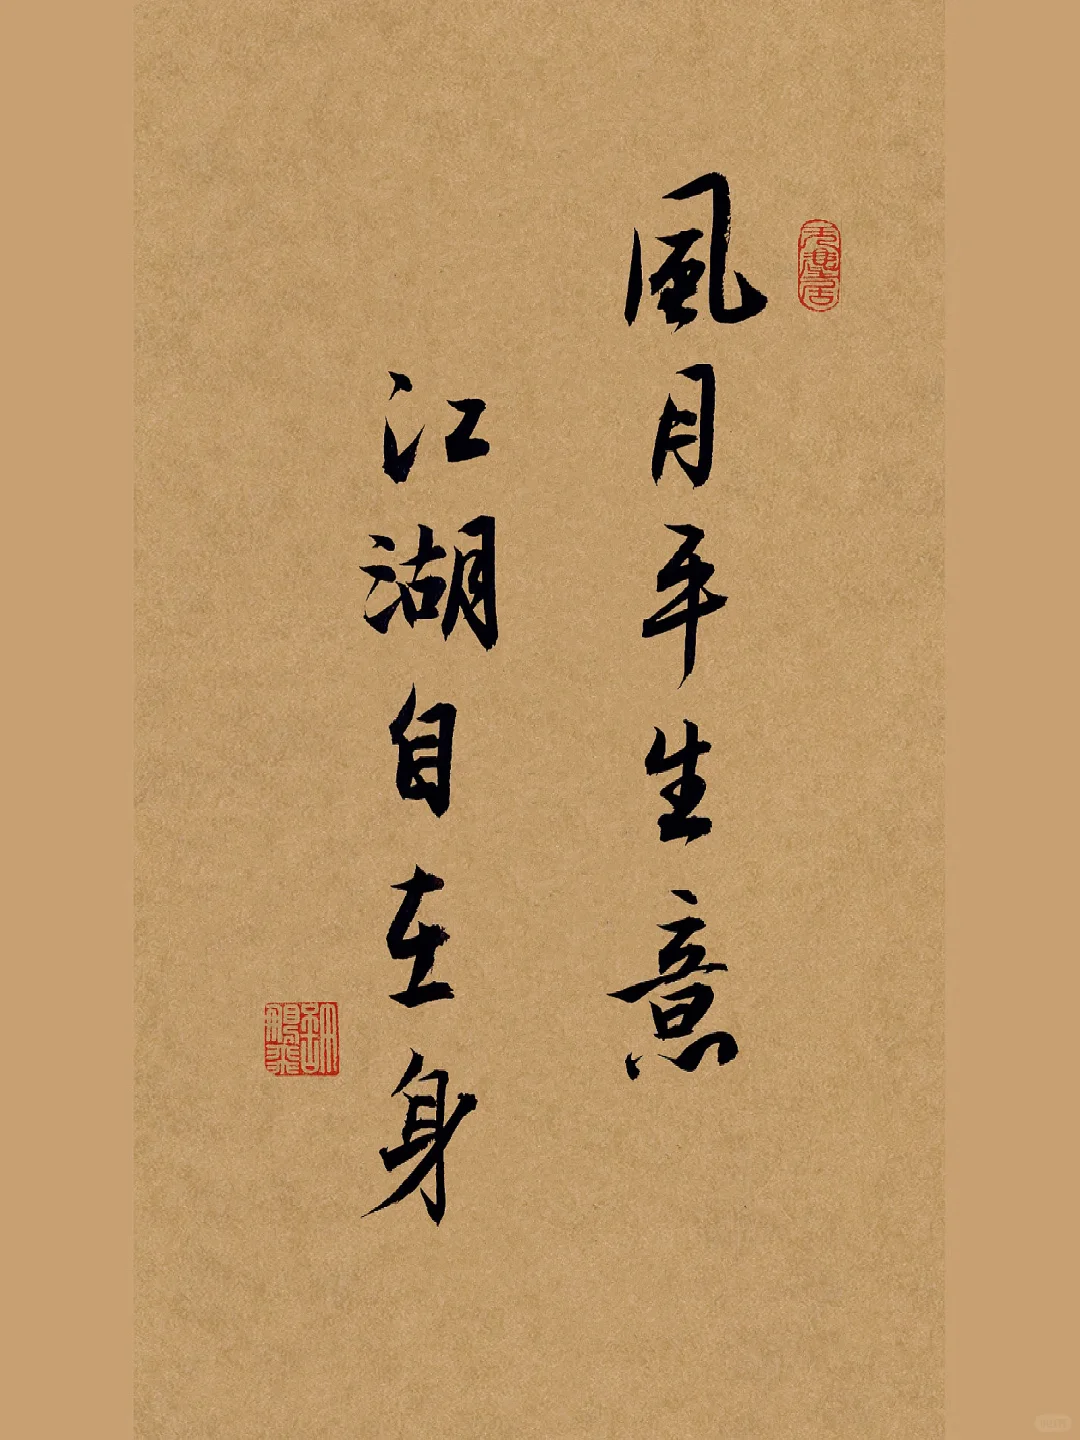 風月平生意
江湖自在身